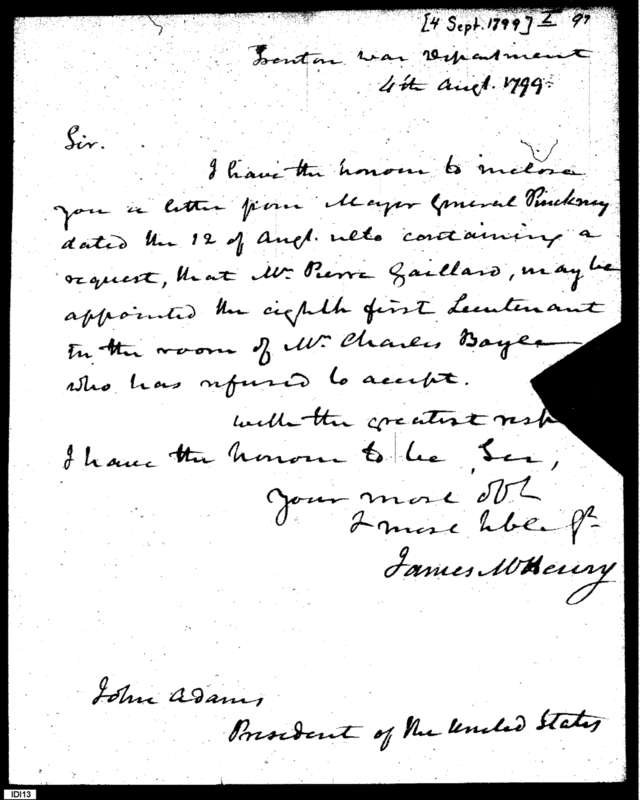 [4 Sept. 1799] I 97
Trenton War Department
4th Augt. 1799.
Sir.
I have the honour to inclose
you a letter from Major General Pinckney
dated the 12 of Augt. ulto containing a
request, that Mr. Pierre Gaillard, may be
appointed the eighth first Lieutenant
in the room of Mr. Charles Boyle
who has refused to accept.
with the greatest resp
I have the honour to be, Sir,
your most obt
& most hble St.
James McHenry
John Adams
President of the United States
IDI13